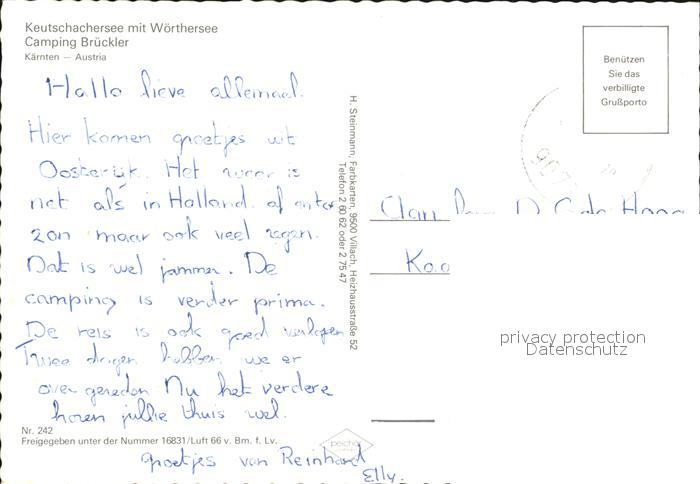 Keutschachersee mit Wörthersee
Camping Brückler
Kärnten — Austria
Hallo lieve allemaal.
Hier komen groetjes uit
Oosterijk. Het weer is
net als in Holland. af en toe
zon maar ook veel regen.
Dat is wel jammer. De
camping is verder prima.
De reis is ook goed verlopen
Twee dagen hebben we er
over gereden Nu het verdere
horen jullie thuis wel.
Nr. 242
Freigegeben unter der Nummer 16831/Luft 66 v. Bm. f. Lv.
groetjes van Reinhard
Elly.
H. Steinmann, Farbkarten, 9500 Villach, Heizhausstraße 52
Telefon 2 60 62 oder 2 75 47
peichär
Benützen
Sie das
verbilligte
Grußporto
907
Aan
Haag
privacy protection
Datenschutz